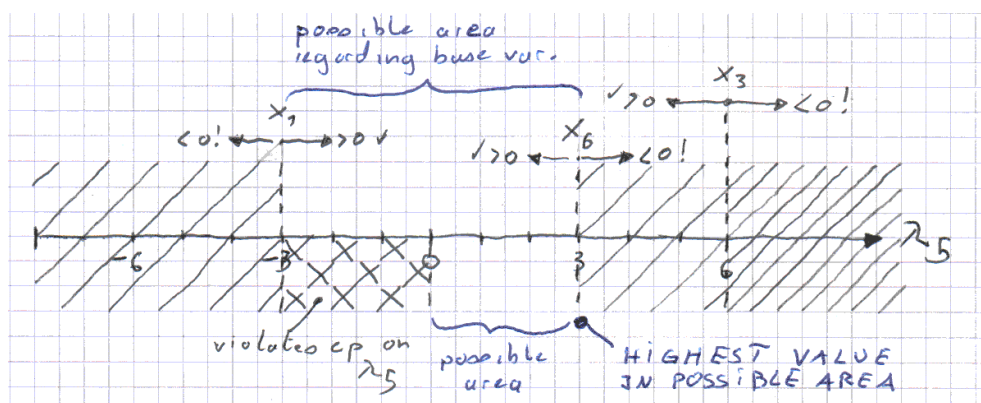 possible area
regarding base var.
x₁
<0! >0 ✓
x₆
✓>0 <0!
x₃
✓>0 <0!
-6 -3 0 3 6 λ5
violates cp on
λ5
possible
area
HIGHEST VALUE
IN POSSIBLE AREA